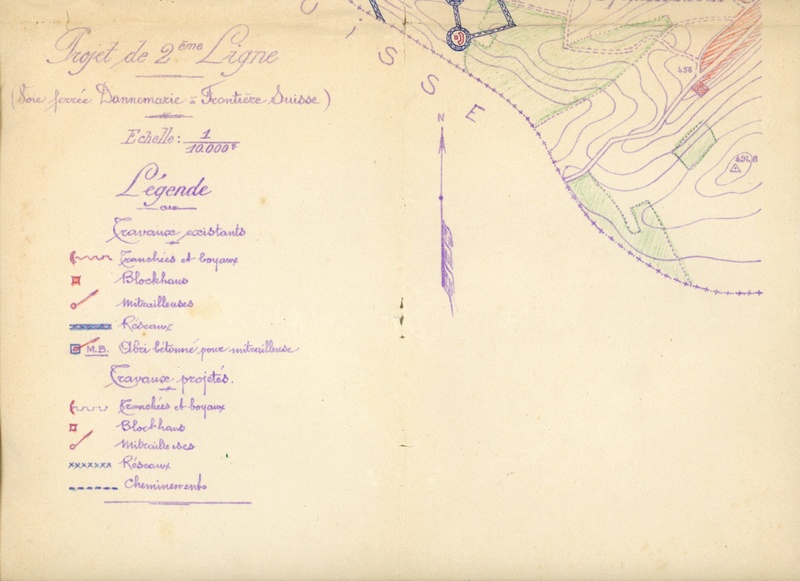 Projet de 2ème Ligne
(Voie ferrée Dannemarie - Frontière Suisse)
Echelle: 1/10.000e
Légende
Travaux existants
Tranchées et boyaux
Blockhaus
Mitrailleuses
Réseaux
M.B. Abri bétonné pour mitrailleuse
Travaux projetés.
Tranchées et boyaux
Blockhaus
Mitrailleuses
Réseaux
Cheminements
ISSE
N
456